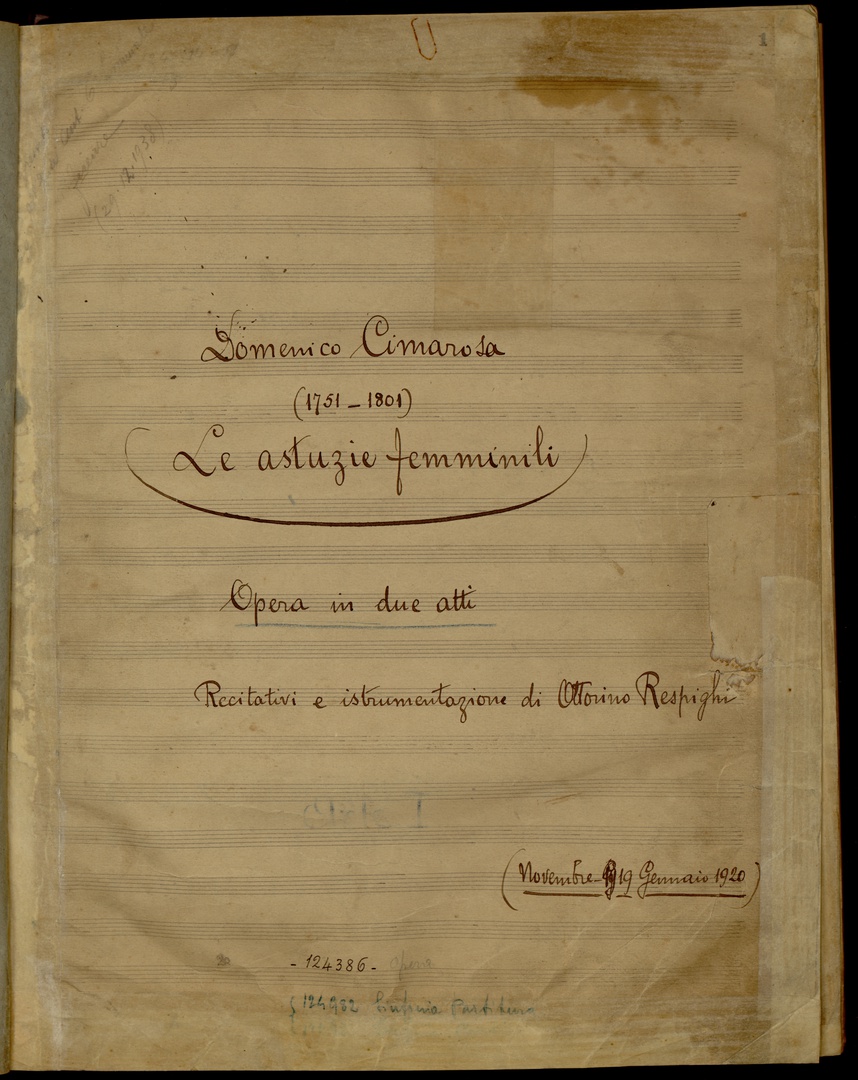 1
(29.12.1938)
Domenico Cimarosa
(1751-1801)
Le astuzie femminili
Opera in due atti
Recitativi e istrumentazione di Ottorino Respighi
(Novembre 1919 Gennaio 1920)
- 124386 - opera
124982 Sinfonia Partitura